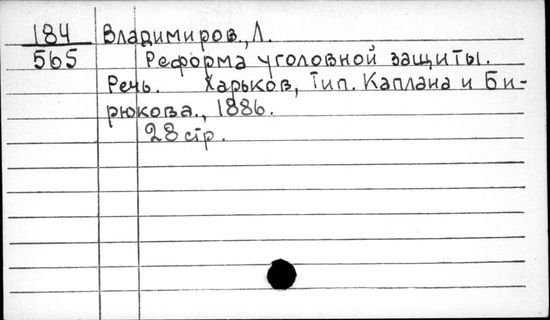 184 Владимиров., Л.
565 Реформа уголовной защиты.
Речь. Харьков, Тип. Каплана и Би-
рюкова., 1886.
28 стр.